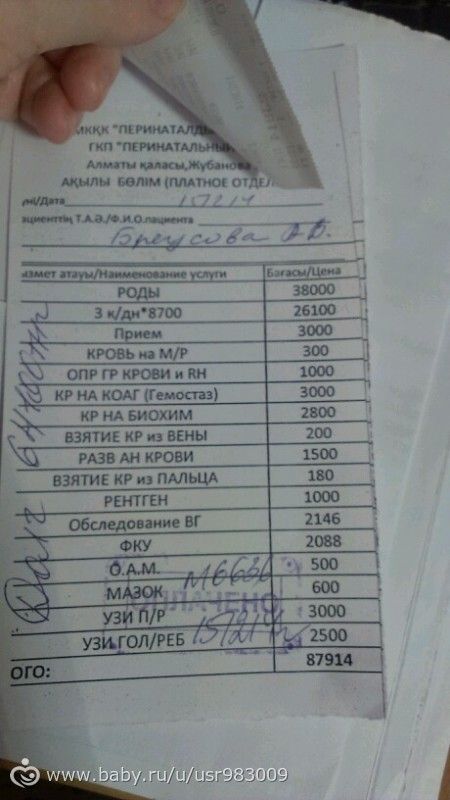 МКҚК "ПЕРИНАТАЛДЫ
ГКП "ПЕРИНАТАЛЬНЫЙ
Алматы қаласы,Жубанова
АҚЫЛЫ БӨЛІМ (ПЛАТНОЕ ОТДЕЛ
үні/Дата
ациенттің Т.А.Ә./Ф.И.О.пациента
ызмет атауы/Наименование услуги Бағасы/Цена
РОДЫ 38000
3 к/дн*8700 26100
Прием 3000
КРОВЬ на М/Р 300
ОПР ГР КРОВИ и RH 1000
КР НА КОАГ (Гемостаз) 3000
КР НА БИОХИМ 2800
ВЗЯТИЕ КР из ВЕНЫ 200
РАЗВ АН КРОВИ 1500
ВЗЯТИЕ КР из ПАЛЬЦА 180
РЕНТГЕН 1000
Обследование ВГ 2146
ФКУ 2088
О.А.М. 500
МАЗОК 600
УЗИ П/Р 3000
УЗИ ГОЛ/РЕБ 2500
ОГО: 87914
ОПЛАЧЕНО
www.baby.ru/u/usr983009